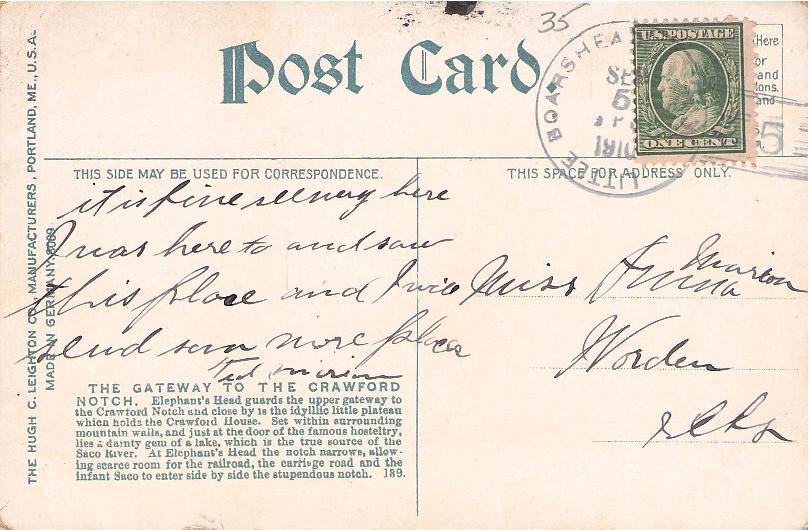 35
Post Card.
LITTLE BOARSHEA
SE
5
1910
U.S. POSTAGE
ONE CENT
Here
or
and
ions.
and
5
THIS SIDE MAY BE USED FOR CORRESPONDENCE.
THIS SPACE FOR ADDRESS ONLY.
it is fine seenery here
I was here to and saw
this place and I wic
send som more places
Ted Marion
Miss Anna Marion
Worden
THE GATEWAY TO THE CRAWFORD
NOTCH. Elephant's Head guards the upper gateway to
the Crawford Notch and close by is the idyllic little plateau
which holds the Crawford House. Set within surrounding
mountain walls, and just at the door of the famous hosteltry,
lies a dainty gem of a lake, which is the true source of the
Saco River. At Elephant's Head the notch narrows, allow-
ing scarce room for the railroad, the carriage road and the
infant Saco to enter side by side the stupendous notch. 189.
THE HUGH C. LEIGHTON CO., MANUFACTURERS, PORTLAND, ME., U.S.A.
MADE IN GERMANY